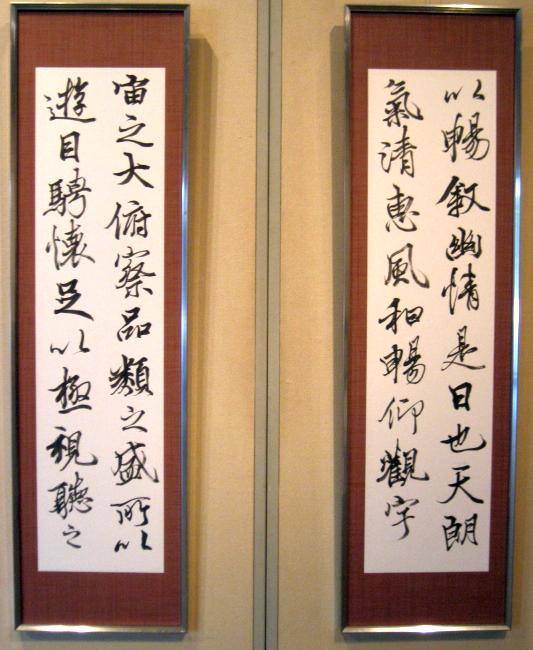 以暢叙幽情是日也天朗
氣清惠風和暢仰觀宇
宙之大俯察品類之盛所以
遊目騁懐足以極視聽之